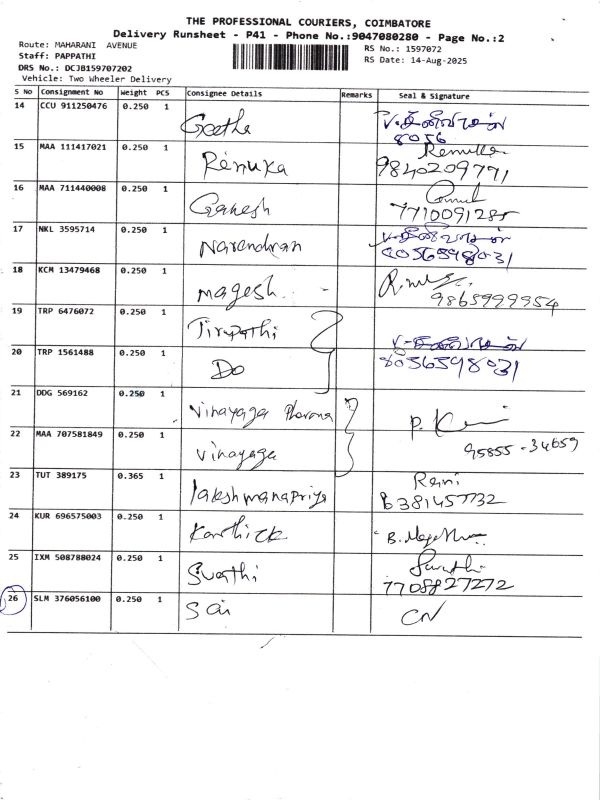 THE PROFESSIONAL COURIERS, COIMBATORE
Delivery Runsheet - P41 - Phone No.:9047080280 - Page No.:2
Route: MAHARANI AVENUE
Staff: PAPPATHI
DRS No.: DCJB159707202
Vehicle: Two Wheeler Delivery
RS No.: 1597072
RS Date: 14-Aug-2025
S No Consignment No Weight PCS Consignee Details Remarks Seal & Signature
14 CCU 911250476 0.250 1 Geetha 8056
15 MAA 111417021 0.250 1 Renuka Renuka 9840209771
16 MAA 711440008 0.250 1 Ganesh 7710091285
17 NKL 3595714 0.250 1 Narendran 8056598031
18 KCM 13479468 0.250 1 Magesh 9865999954
19 TRP 6476072 0.250 1 Tirupathi
20 TRP 1561488 0.250 1 Do 8056598031
21 DDG 569162 0.250 1 Vinayaga Pharma
22 MAA 707581849 0.250 1 Vinayaga 95855-34659
23 TUT 389175 0.365 1 lakshmanapriya Rani 6381457732
24 KUR 696575003 0.250 1 Karthick
25 IXM 508788024 0.250 1 Swathi Swathi 7708827272
26 SLM 376056100 0.250 1 Sai CN